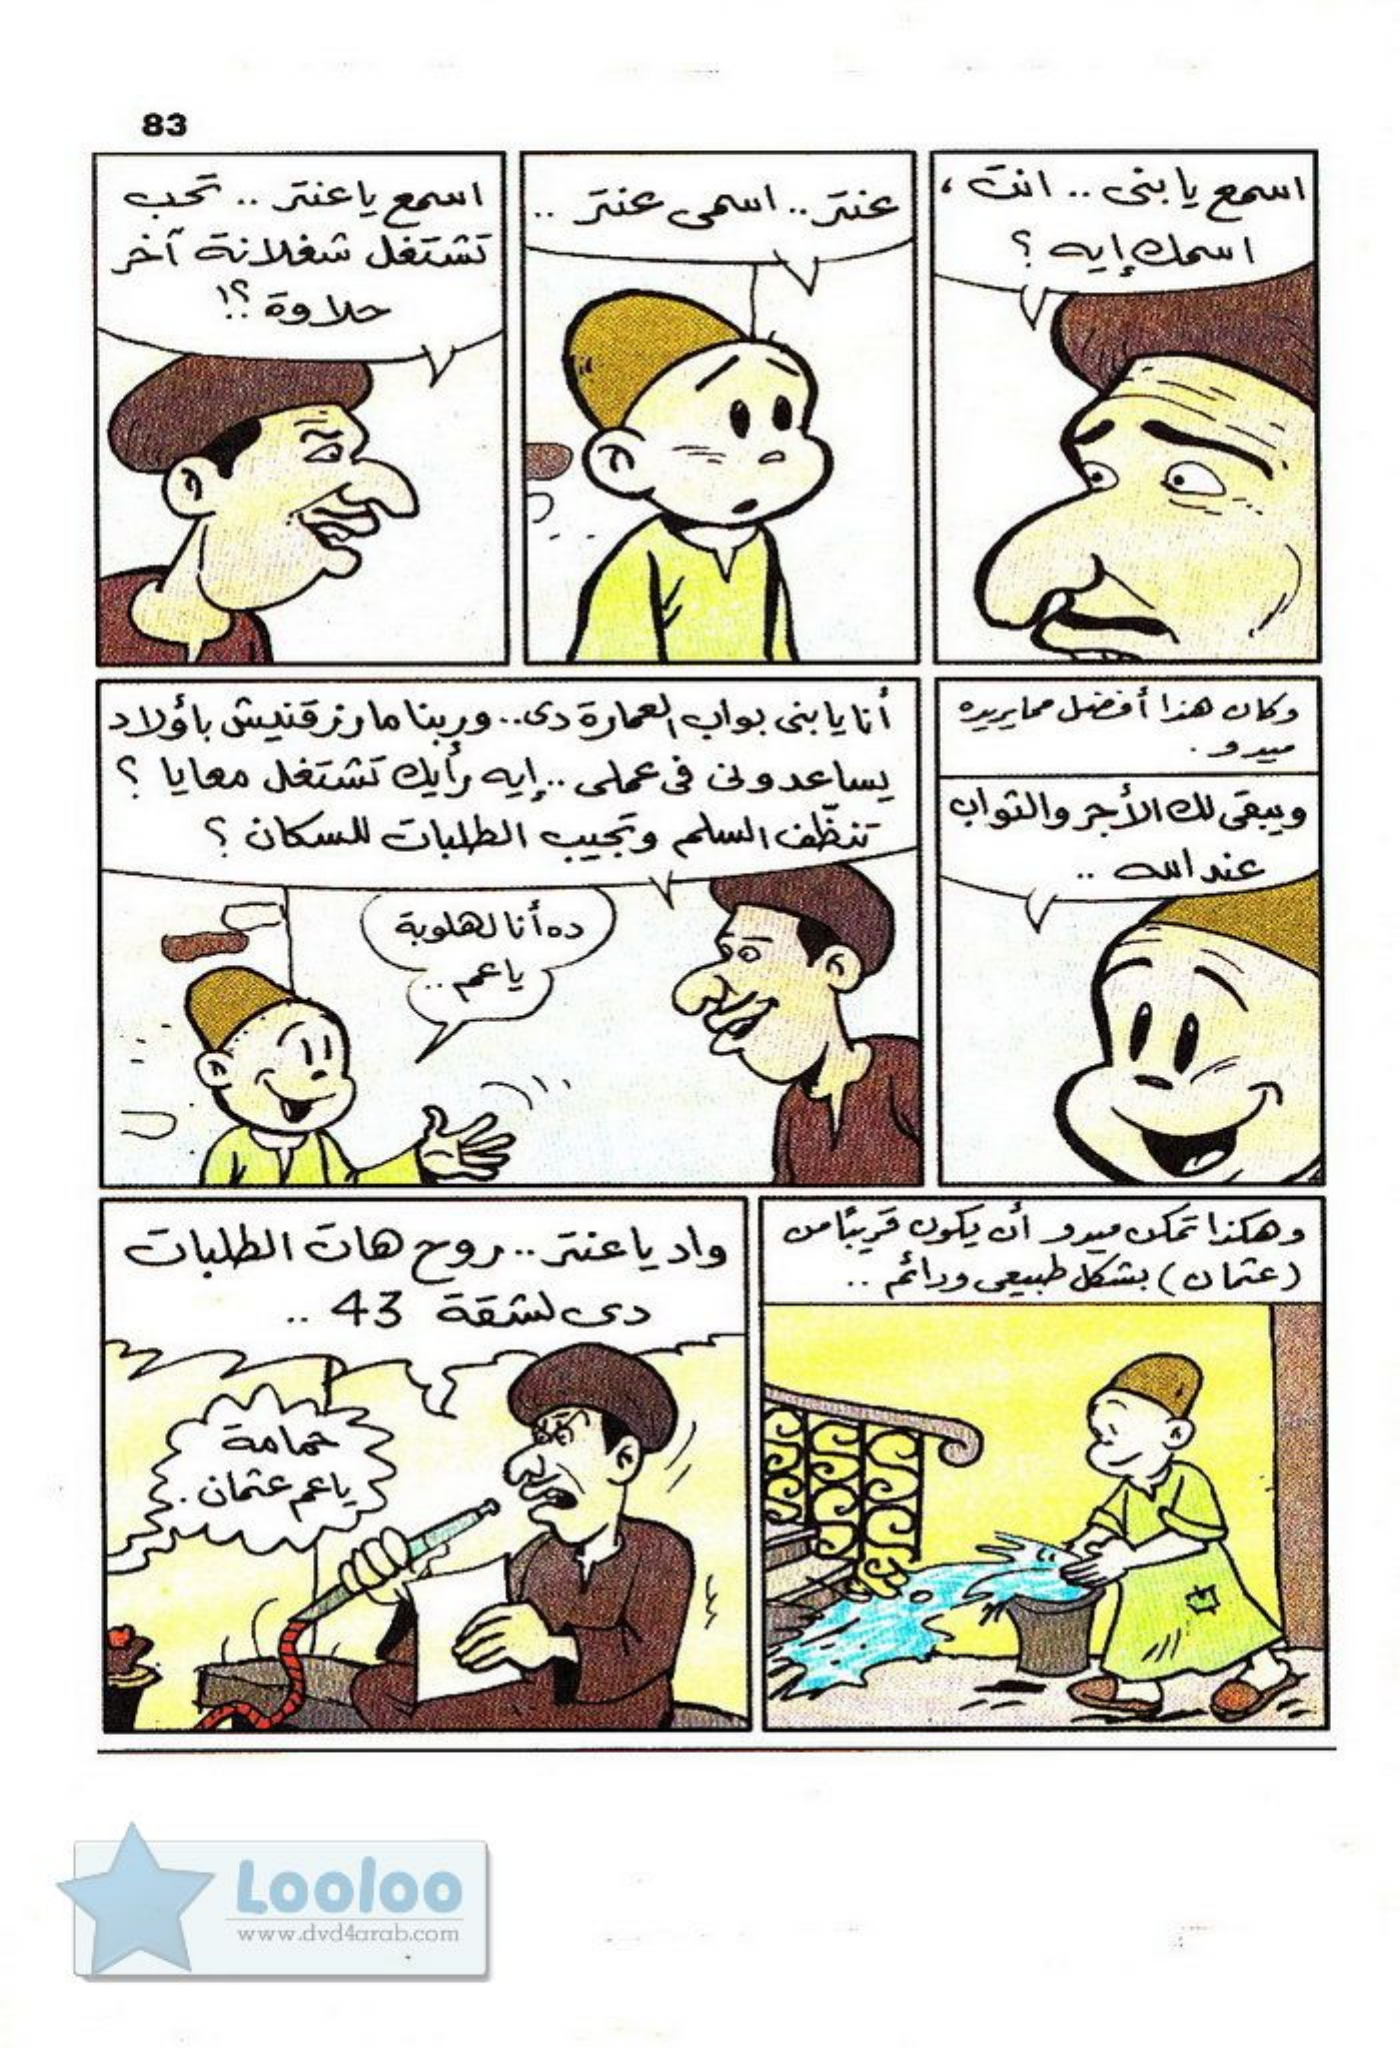 83
اسمع يا بنى .. انت ،
اسمك إيه ؟
عنتر .. اسمى عنتر ..
اسمع يا عنتر .. تحب
تشتغل شغلانة آخر
حلاوة ؟!
وكان هذا أفضل مما يريده
ميدو .
ويبقى لك الأجر والثواب
عند الله ..
أنا يا بنى بواب العمارة دى .. وربنا مارزقنيش بأولاد
يساعدونى فى عملى .. إيه رأيك تشتغل معايا ؟
تنظّف السلم وتجيب الطلبات للسكان ؟
ده أنا لهلوبة
يا عم ..
وهكذا تمكن ميدو أن يكون قريبًا من
(عثمان) بشكل طبيعى ودائم ..
واد يا عنتر .. روح هات الطلبات
دى لشقة 43 ..
حمامة
يا عم عثمان .
Looloo
www.dvd4arab.com